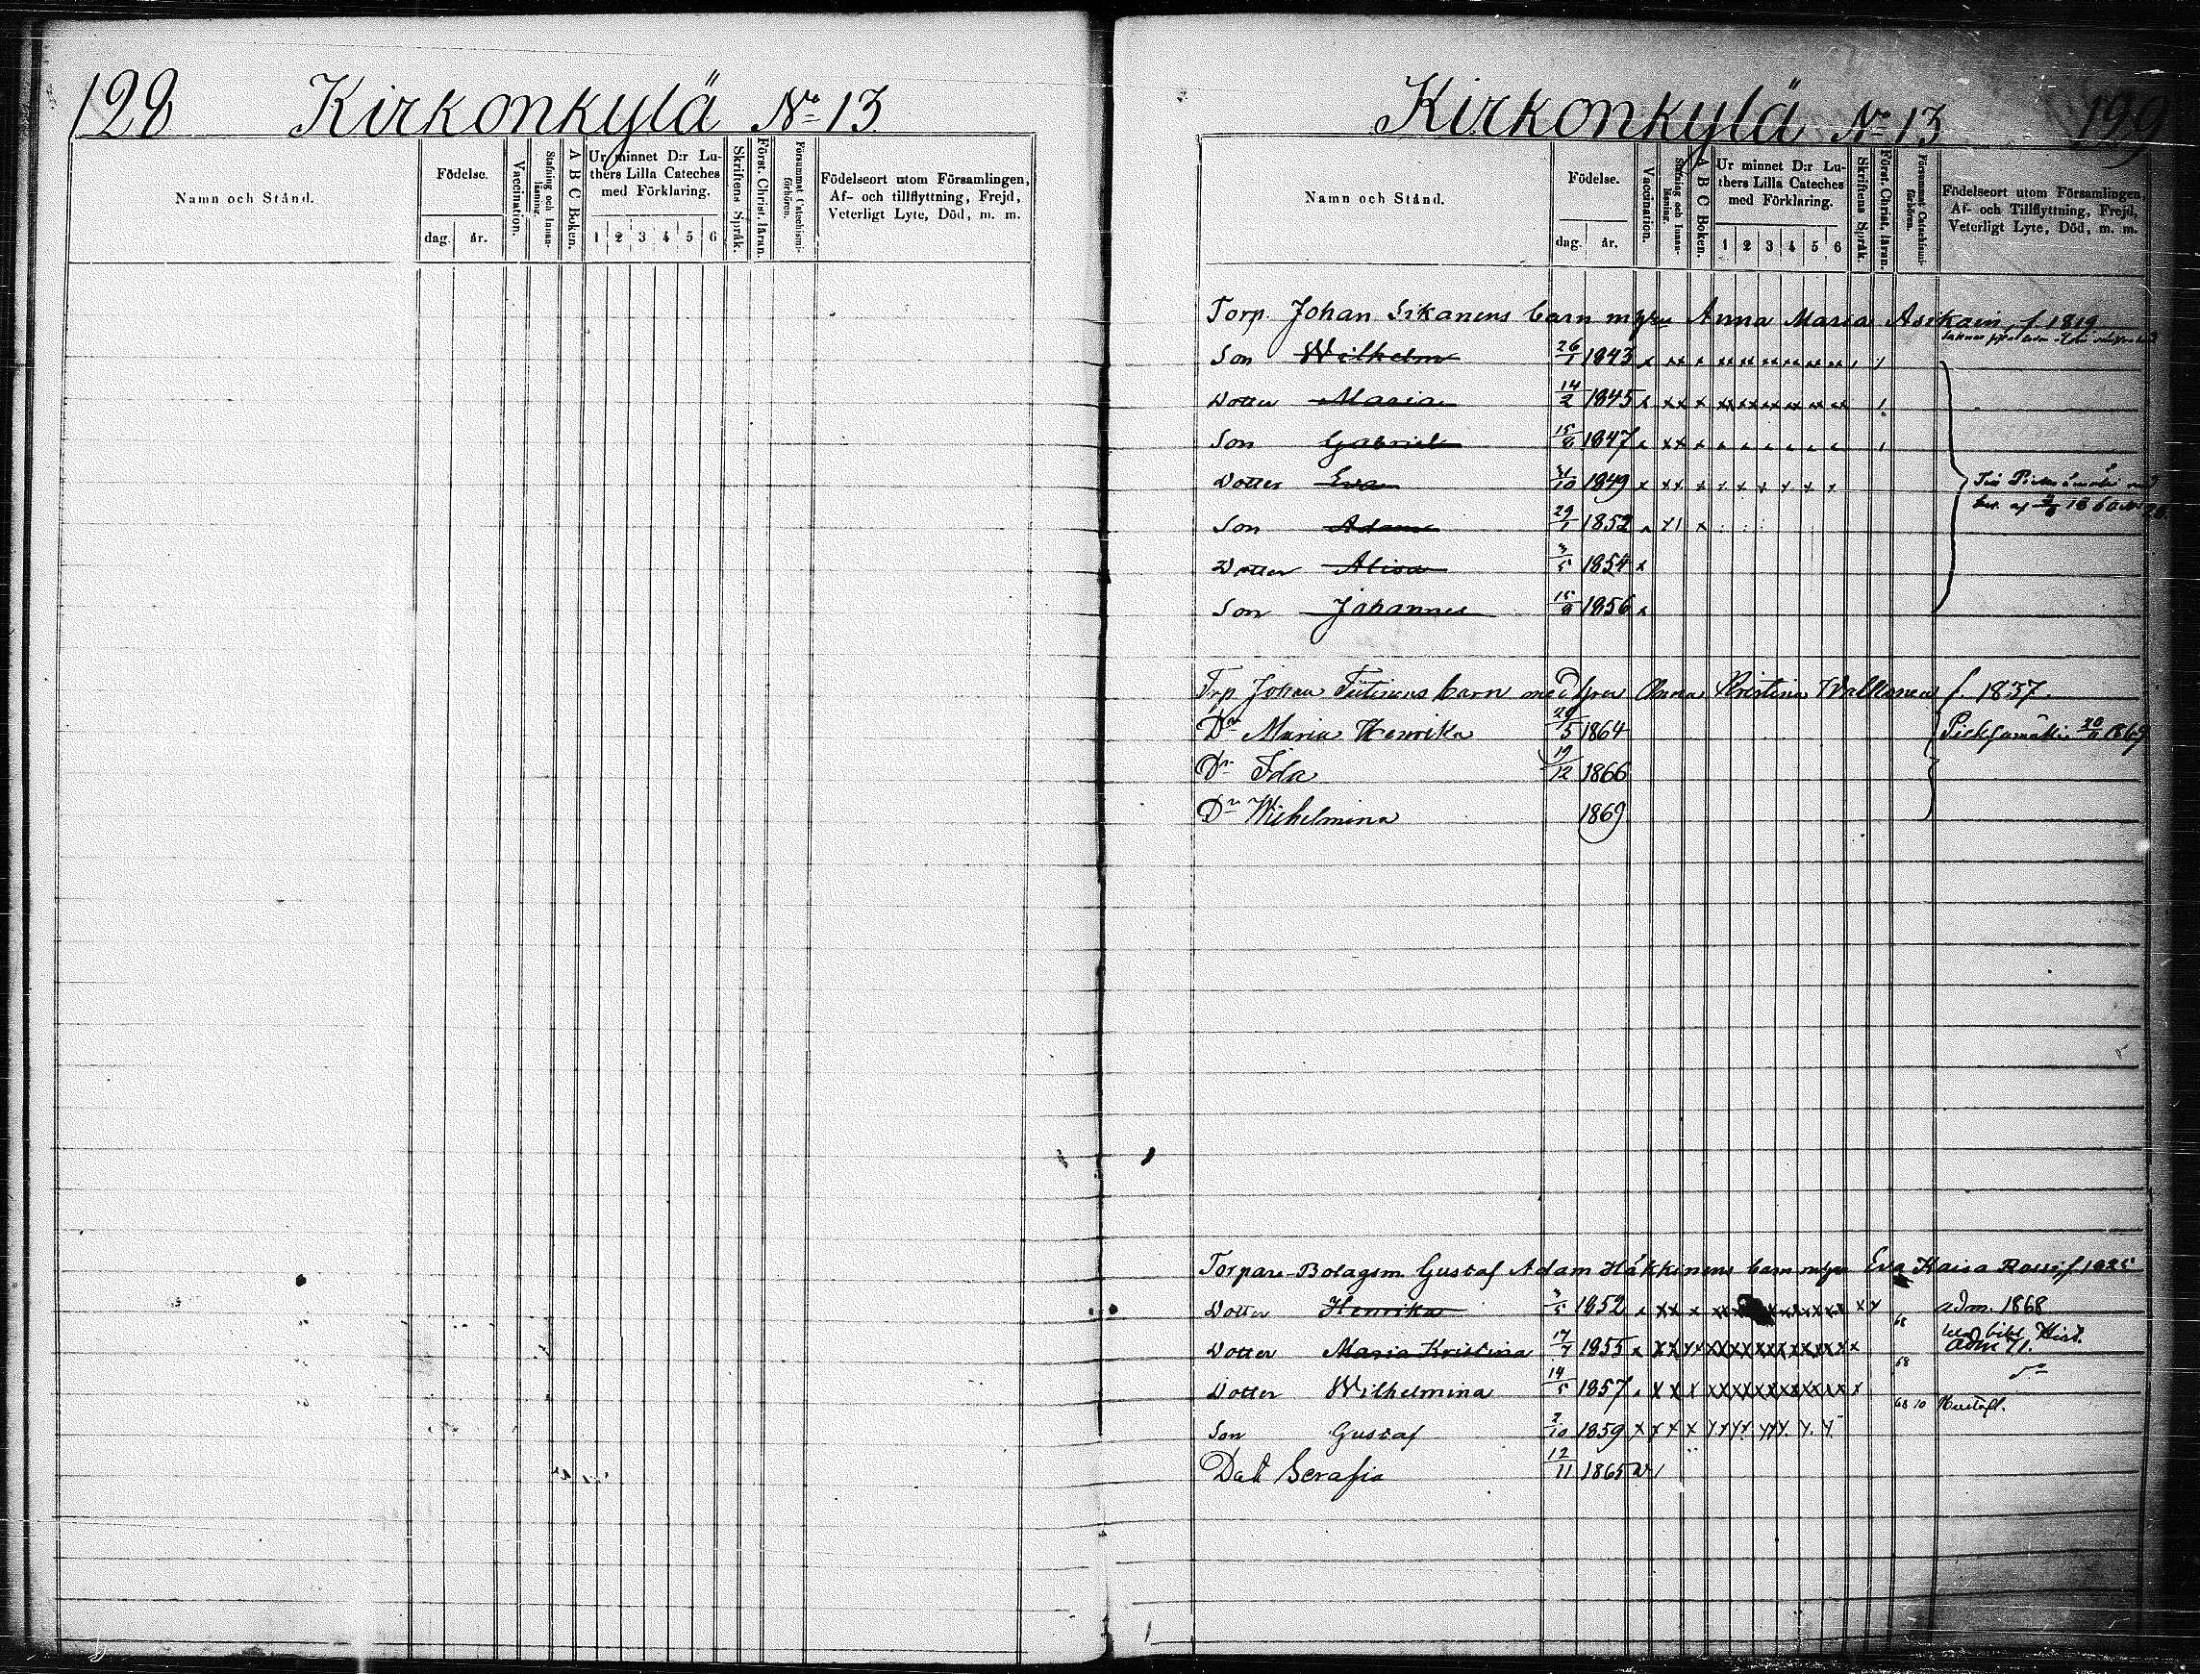 128 Kirkonkylä No 13
Namn och Stånd.
Födelse.
dag. år.
Vaccination.
Stafning och Innan-läsning.
A B C Boken.
Ur minnet D:r Lu-
thers Lilla Cateches
med Förklaring.
1 2 3 4 5 6
Skriftens Språk.
Först. Christ. läran.
Försummat Catechismi-förhören.
Födelseort utom Församlingen,
Af- och tillflyttning, Frejd,
Veterligt Lyte, Död, m. m.
Kirkonkylä No 13 129
Namn och Stånd.
Födelse.
dag. år.
Vaccination.
Stafning och Innan-läsning.
A B C Boken.
Ur minnet D:r Lu-
thers Lilla Cateches
med Förklaring.
1 2 3 4 5 6
Skriftens Språk.
Först. Christ. läran.
Försummat Catechismi-förhören.
Födelseort utom Församlingen,
Af- och Tillflyttning, Frejd,
Veterligt Lyte, Död, m. m.
Torp. Johan Sikanens barn m hru Anna Maria Asikain, f. 1819
Son Wilhelm 26/1 1843
Dotter Maria 14/2 1845
Son Gabriel 15/8 1847
Dotter Eva 31/10 1849
Son Adam 29/1 1852
Dotter Alisa 3/5 1854
Son Johannes 15/9 1856
Trp. Johan Tiitinens barn med hru Anna Kristina Walkonen f. 1837.
Dr Maria Henrika 29/5 1864 Pieksamäki 1869
Dr Ida 19/12 1866
Dr Wilhelmina 1869
Torpare Bolagsm. Gustaf Adam Häkkinens barn m hru Eva Kaisa Rossi, f. 1825
Dotter Henrika 3/5 1852 adm. 1868
Dotter Maria Kristina 17/7 1855 68 bibl. Hist. Adm 71.
Dotter Wilhelmina 14/5 1857 68
Son Gustaf 2/10 1859 68 10 Hustafl.
Dott Serafia 12/11 1865